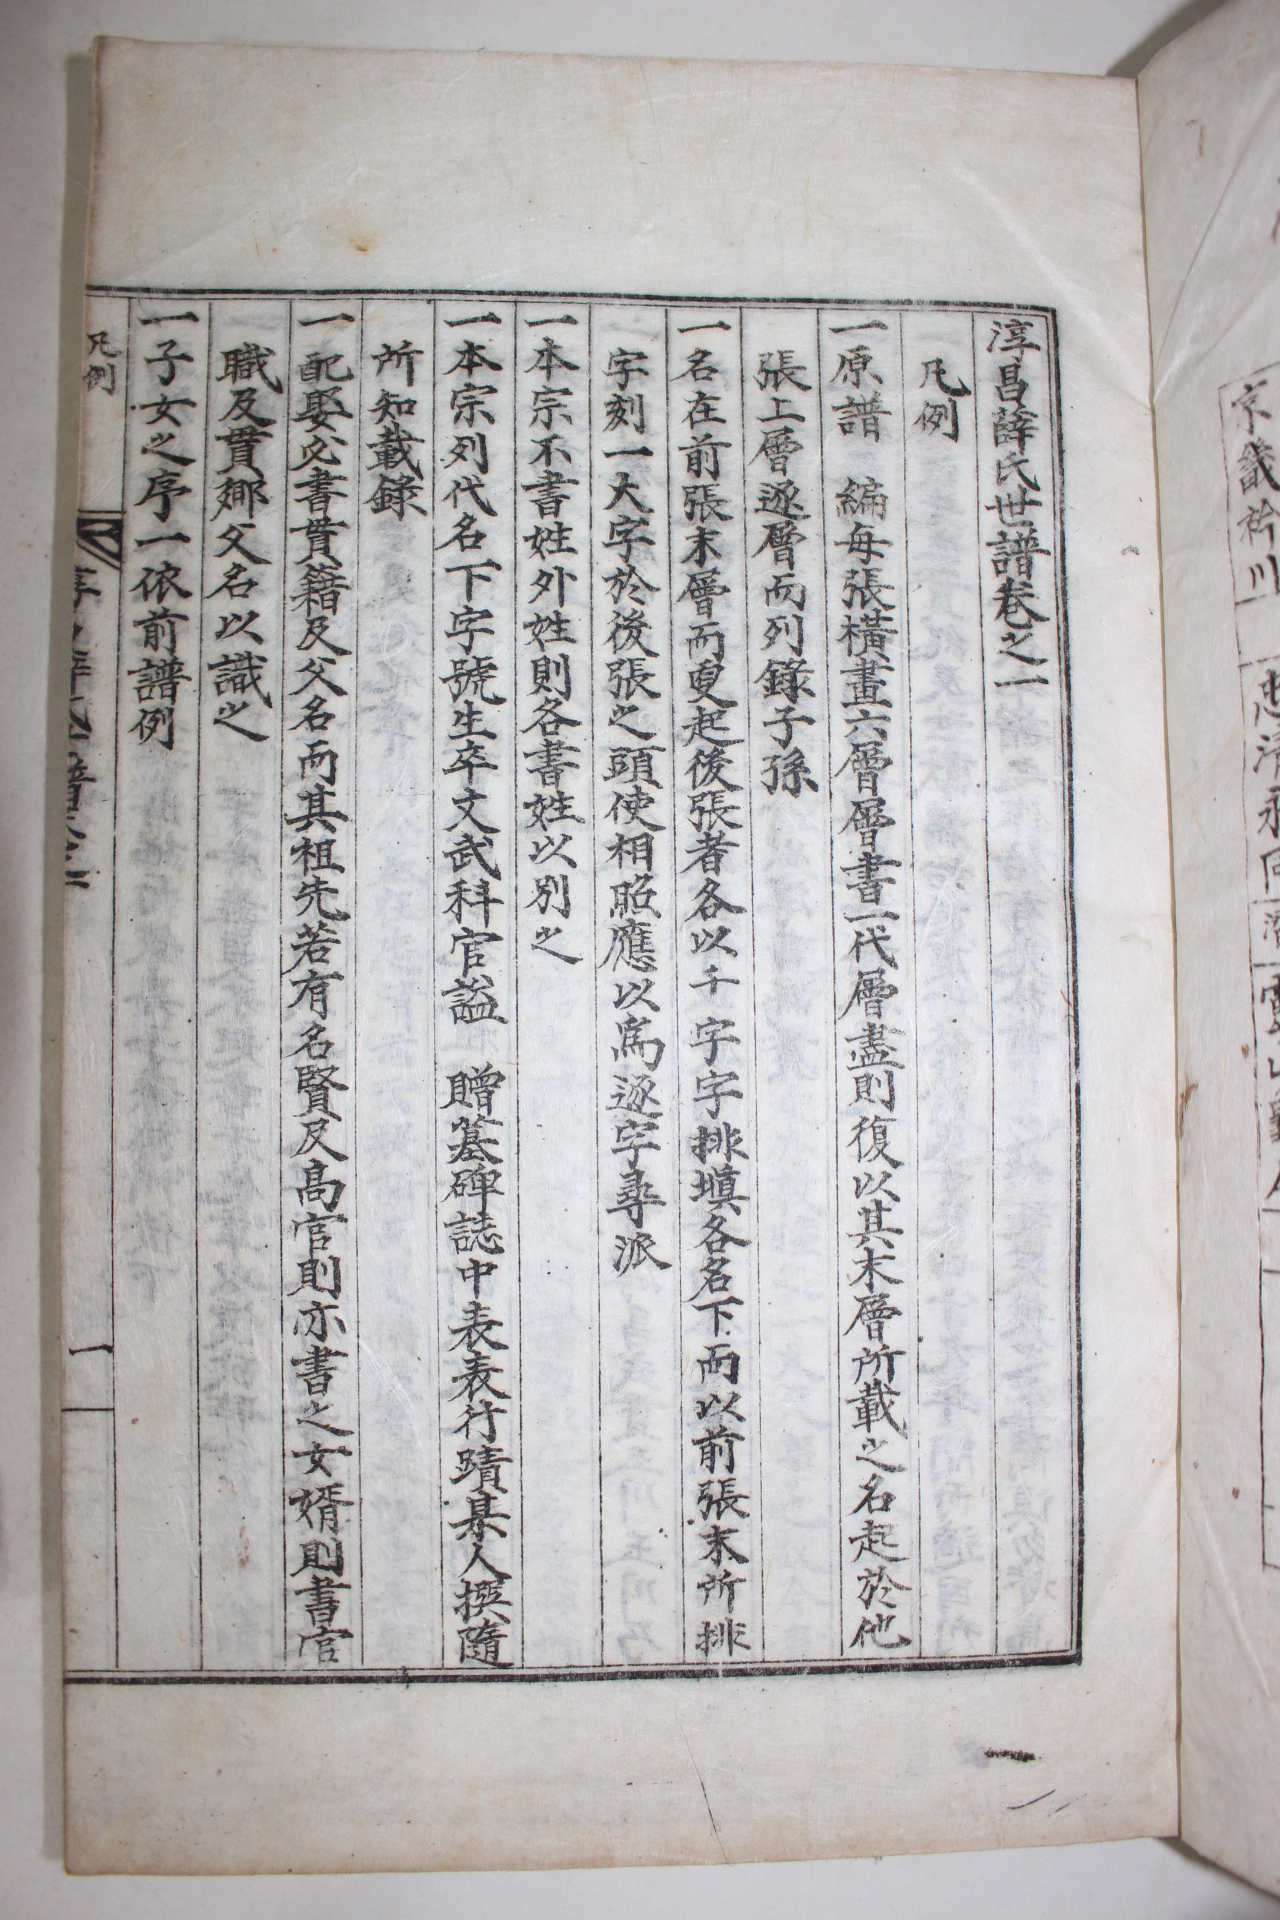 淳昌薛氏世譜卷之一
凡例
一原譜 編每張橫畫六層層書一代層盡則復以其末層所載之名起於他
張上層逐層而列錄子孫
一名在前張末層而更起後張者各以千字字排塡各名下而以前張末所排
字刻一大字於後張之頭使相照應以爲逐字尋派
一本宗不書姓外姓則各書姓以別之
一本宗列代名下字號生卒文武科官謚 贈墓碑誌中表表行蹟某人撰隨
所知載錄
一配娶必書貫籍及父名而其祖先若有名賢及高官則亦書之女婿則書官
職及貫鄕父名以識之
一子女之序一依前譜例
凡例
一
京畿衿川
忠清永同